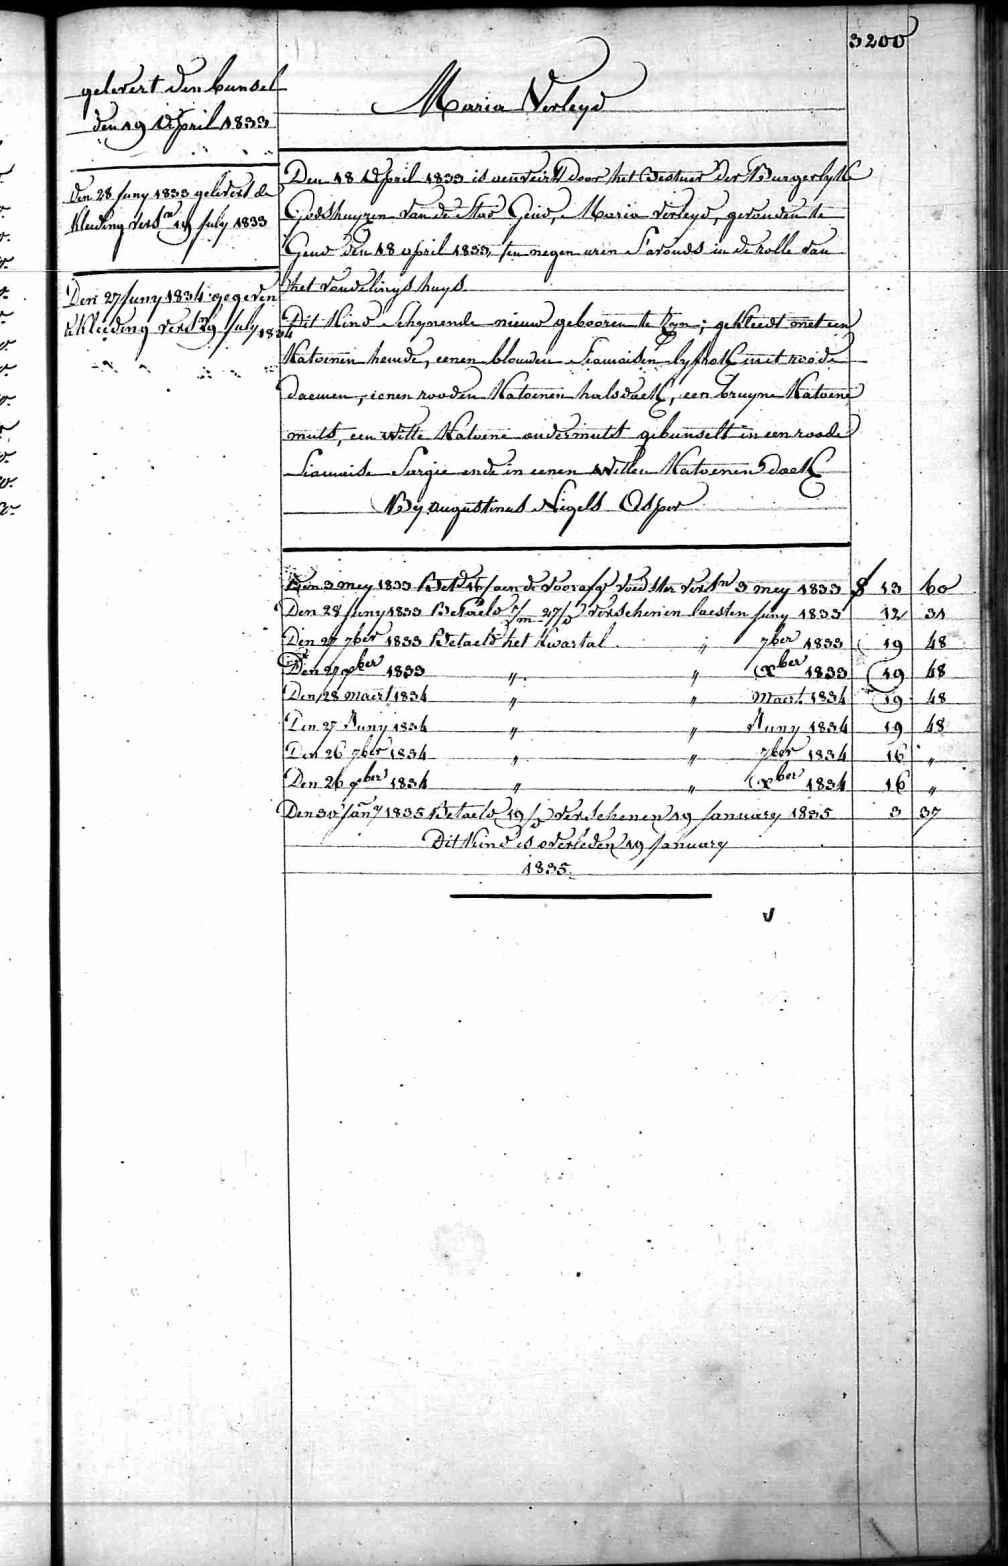 3200
gelevert den bunsel
den 19 April 1833
Den 28 Juny 1833 gelevert de
kleeding versn 19 July 1833
Den 27 Juny 1834 gegeven
de kleeding versn 19 July 1834
Maria Verleyd
Den 18 April 1833 is aenveird door het Bestuer der Burgerlyk
Godshuyzen van de Stad Gend, Maria Verleyd, gevonden te
Gend den 18 april 1833, ten negen uren s'avonds in de rolle van
het vondelings huys.
Dit Kind schynende nieuw gebooren te zyn; gekleedt met een
Katoenen hemde, eenen blouwen Siamoisen lyfrok met roode
, eenen rooden Katoenen halsdoek, een bruyne Katoene
muts, een witte Katoene ondermuts gebunselt in een roode
Siamoise Sargie ende in eenen witten Katoenen doek
By Augustinus Nigels Asper
Den 3 mey 1833 de voorafg voedster versn 3 mey 1833 13 60
Den 28 Juny 1833 Betaeld verschenen laesten Juny 1833 12 31
Den 27 7ber 1833 Betaeld het Kwartal " 7ber 1833 19 48
Den 27 xber 1833 " " xber 1833 19 48
Den 28 maert 1834 " " Maert 1834 19 48
Den 27 Juny 1834 " " Juny 1834 19 48
Den 26 7ber 1834 " " 7ber 1834 16 "
Den 26 xber 1834 " " xber 1834 16 "
Den 30 Jany 1835 Betaeld 19/ verschenen 19 January 1835 3 37
Dit Kind is overleden 19 January
1835.